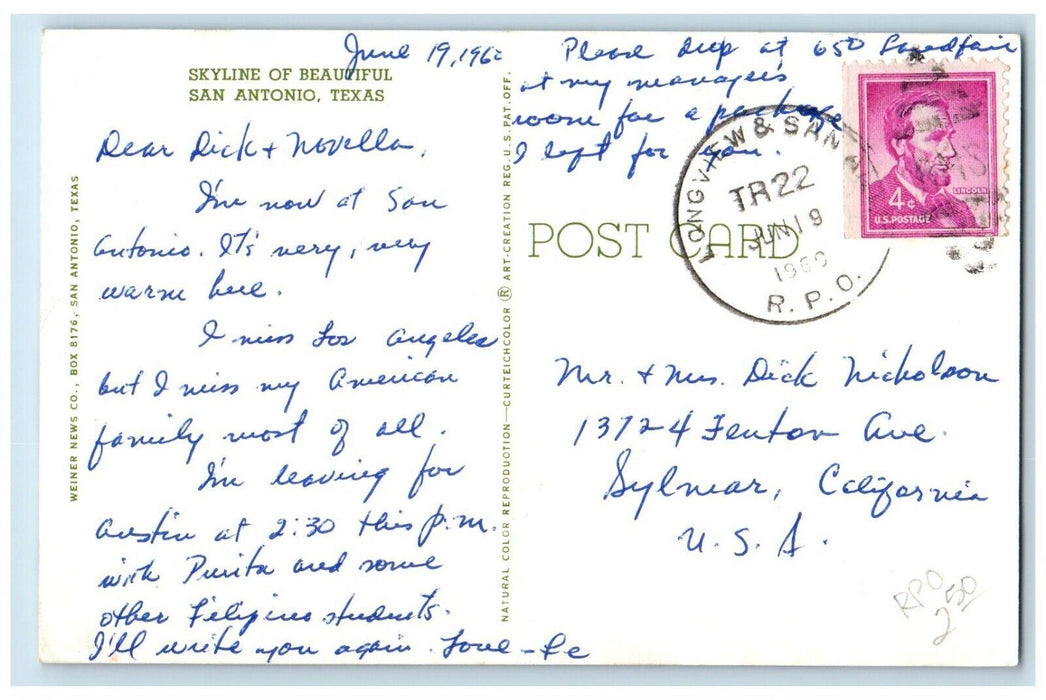 SKYLINE OF BEAUTIFUL
SAN ANTONIO, TEXAS
June 19, 196
Dear Dick + Novella,
I'm now at San
Antonio. It's very, very
warm here.
I miss Los Angeles
but I miss my American
family most of all.
I'm leaving for
Austin at 2:30 this p.m.
with Purita and some
other Filipino students.
I'll write you again. Love - Fe
Please drop at 650
at my manager's
room for a package
I left for you.
WEINER NEWS CO., BOX 8176, SAN ANTONIO, TEXAS
NATURAL COLOR REPRODUCTION—CURTEICHCOLOR ® ART-CREATION REG. U.S. PAT. OFF.
POST CARD
LONGVIEW & SAN
TR 22
JUN 19
1960
R.P.O.
LINCOLN
4¢
U.S. POSTAGE
Mr. + Mrs. Dick Nicholson
13724 Fenton Ave.
Sylmar, California
U.S.A.
RPO
250